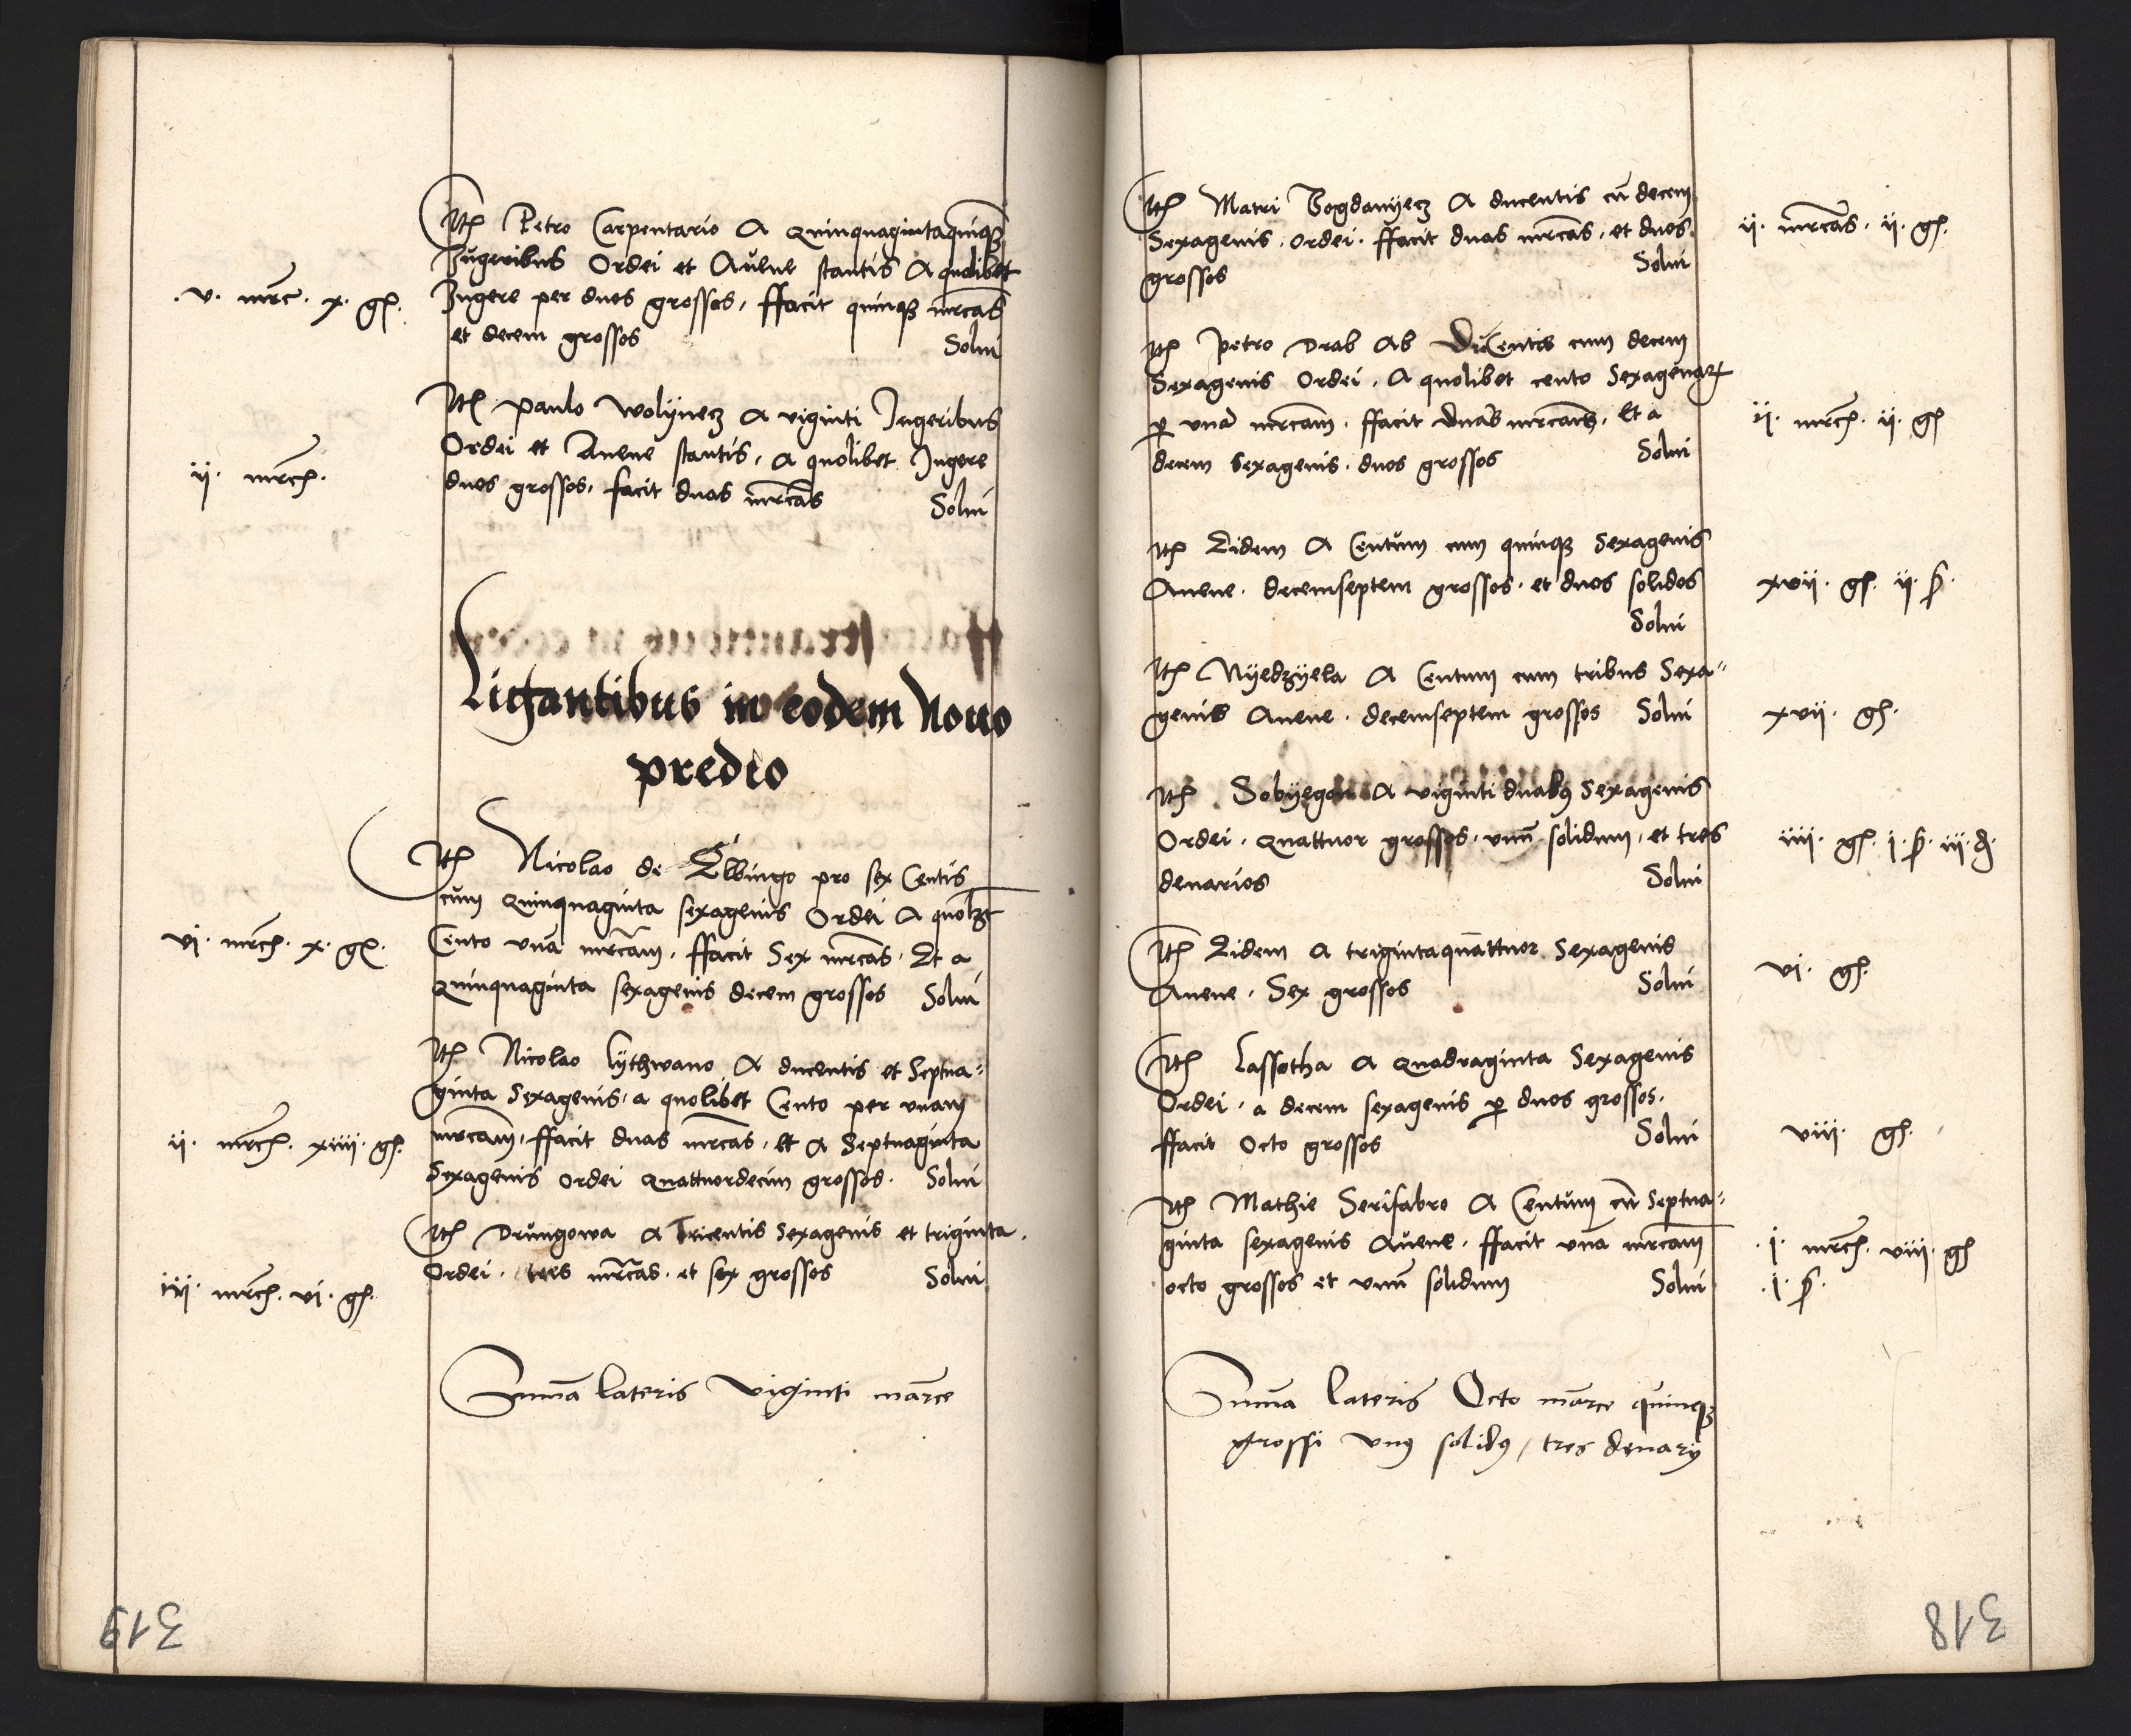 Itm Petro Carpentario A Quinquagintaquinqz
Jugeribus Ordei et Auene stantis A quolibet
.v. mrc. x. gs. Jugere per duos grossos, ffacit quinqz mrcas
et decem grossos Solui
Itm Paulo Wolijnecz A viginti Jugeribus
Ordei et Auene stantis, A quolibet Jugere
ij. mrcs. duos grossos, facit duas mrcas Solui
Ligantibus in eodem Nouo
predio
Itm Nicolao de Elbingo pro sex Centis
cum Quinquaginta sexagenis Ordei A quolzt
vi. mrcs. x. gs. Cento vna mrcam, ffacit Sex mrcas. Et a
Quinquaginta sexagenis decem grossos Solui
Itm Nicolao Lythwano A ducentis et Septua⸗
ginta Sexagenis, a quolibet Cento per vnam
ii. mrcs. xiiij. gs. mrcam, ffacit duas mrcas, Et A Septuaginta
Sexagenis Ordei Quattuordecim grossos. Solui
Itm Drungowa A Tricentis Sexagenis et triginta.
iij. mrcs. vi. gs. Ordei. tres mrcas. et sex grossos Solui
Suma Lateris Viginti marce
319
Itm Matri Bogdanijecz A ducentis cu decem
Sexagenis. Ordei. ffacit duas mrcas. et duos. ij. mrcas. ij. gs.
grossos Solui
Itm Petro Drab Ab Ducentis cum decem
Sexagenis Ordei. A quolibet cento Sexagenar
p vna mrcam. ffacit duas mrcas. Et a ij. mrcs. ij. gs
decem Sexagenis. duos grossos Solui
Itm Eidem A Centum cum quinqz Sexagenis
Auene. decemseptem grossos. et duos solidos xvij. gs. ij. s.
Solui
Itm Nijedzijela A Centum cum tribus Sexa⸗
genis Auene. decemseptem grossos Solui xvij. gs.
Itm. A viginti duabus Sexagenis
Ordei. Quattuor grossos. vnu solidum, et tres iiij. gs. j. s. iij. d.
denarios Solui
Itm Eidem A trigintaquattuor Sexagenis
Auene. Sex grossos Solui vi. gs.
Itm Lassotha A Quadraginta Sexagenis
Ordei. a decem sexagenis p duos grossos.
ffacit Octo grossos Solui viij. gs.
Itm Mathie Serifabro A Centum cu Septua⸗
ginta sexagenis Auene. ffacit vna mrcam .j. mrcs. viij. gs
octo grossos et vnu solidum Solui .j. s.
Suma Lateris Octo marce quinqz
grossi vnus solidus, tres denarij
318